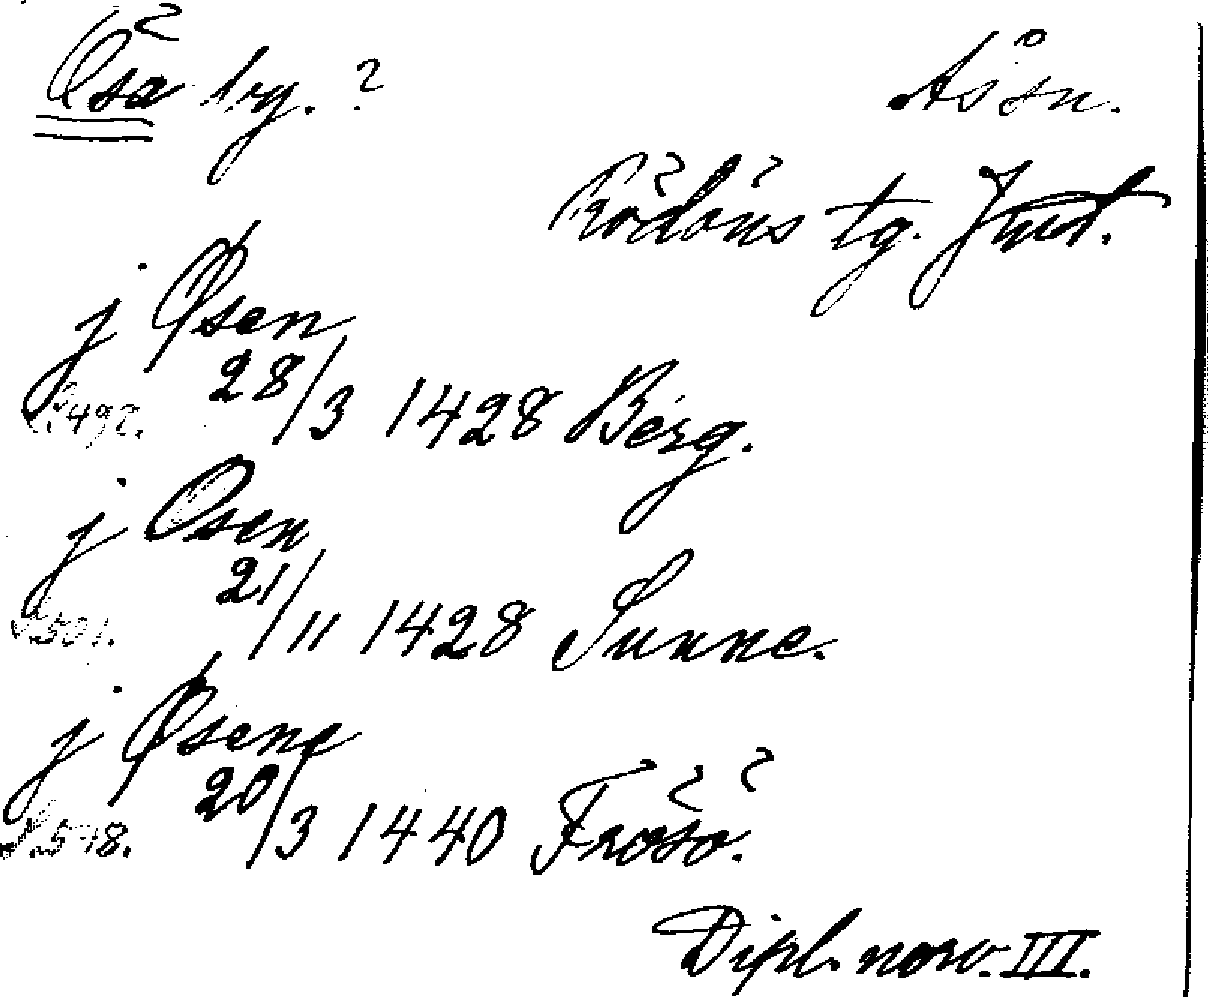 Ösa by. ?
Ås sn.
Rödöns tg. Jmtl.
j Øsen
S. 492. 28/3 1428 Berg.
j Osen
S. 501. 21/11 1428 Sunne.
j Øsene
S. 578. 20/3 1440 Frösö.
Dipl. norv. III.